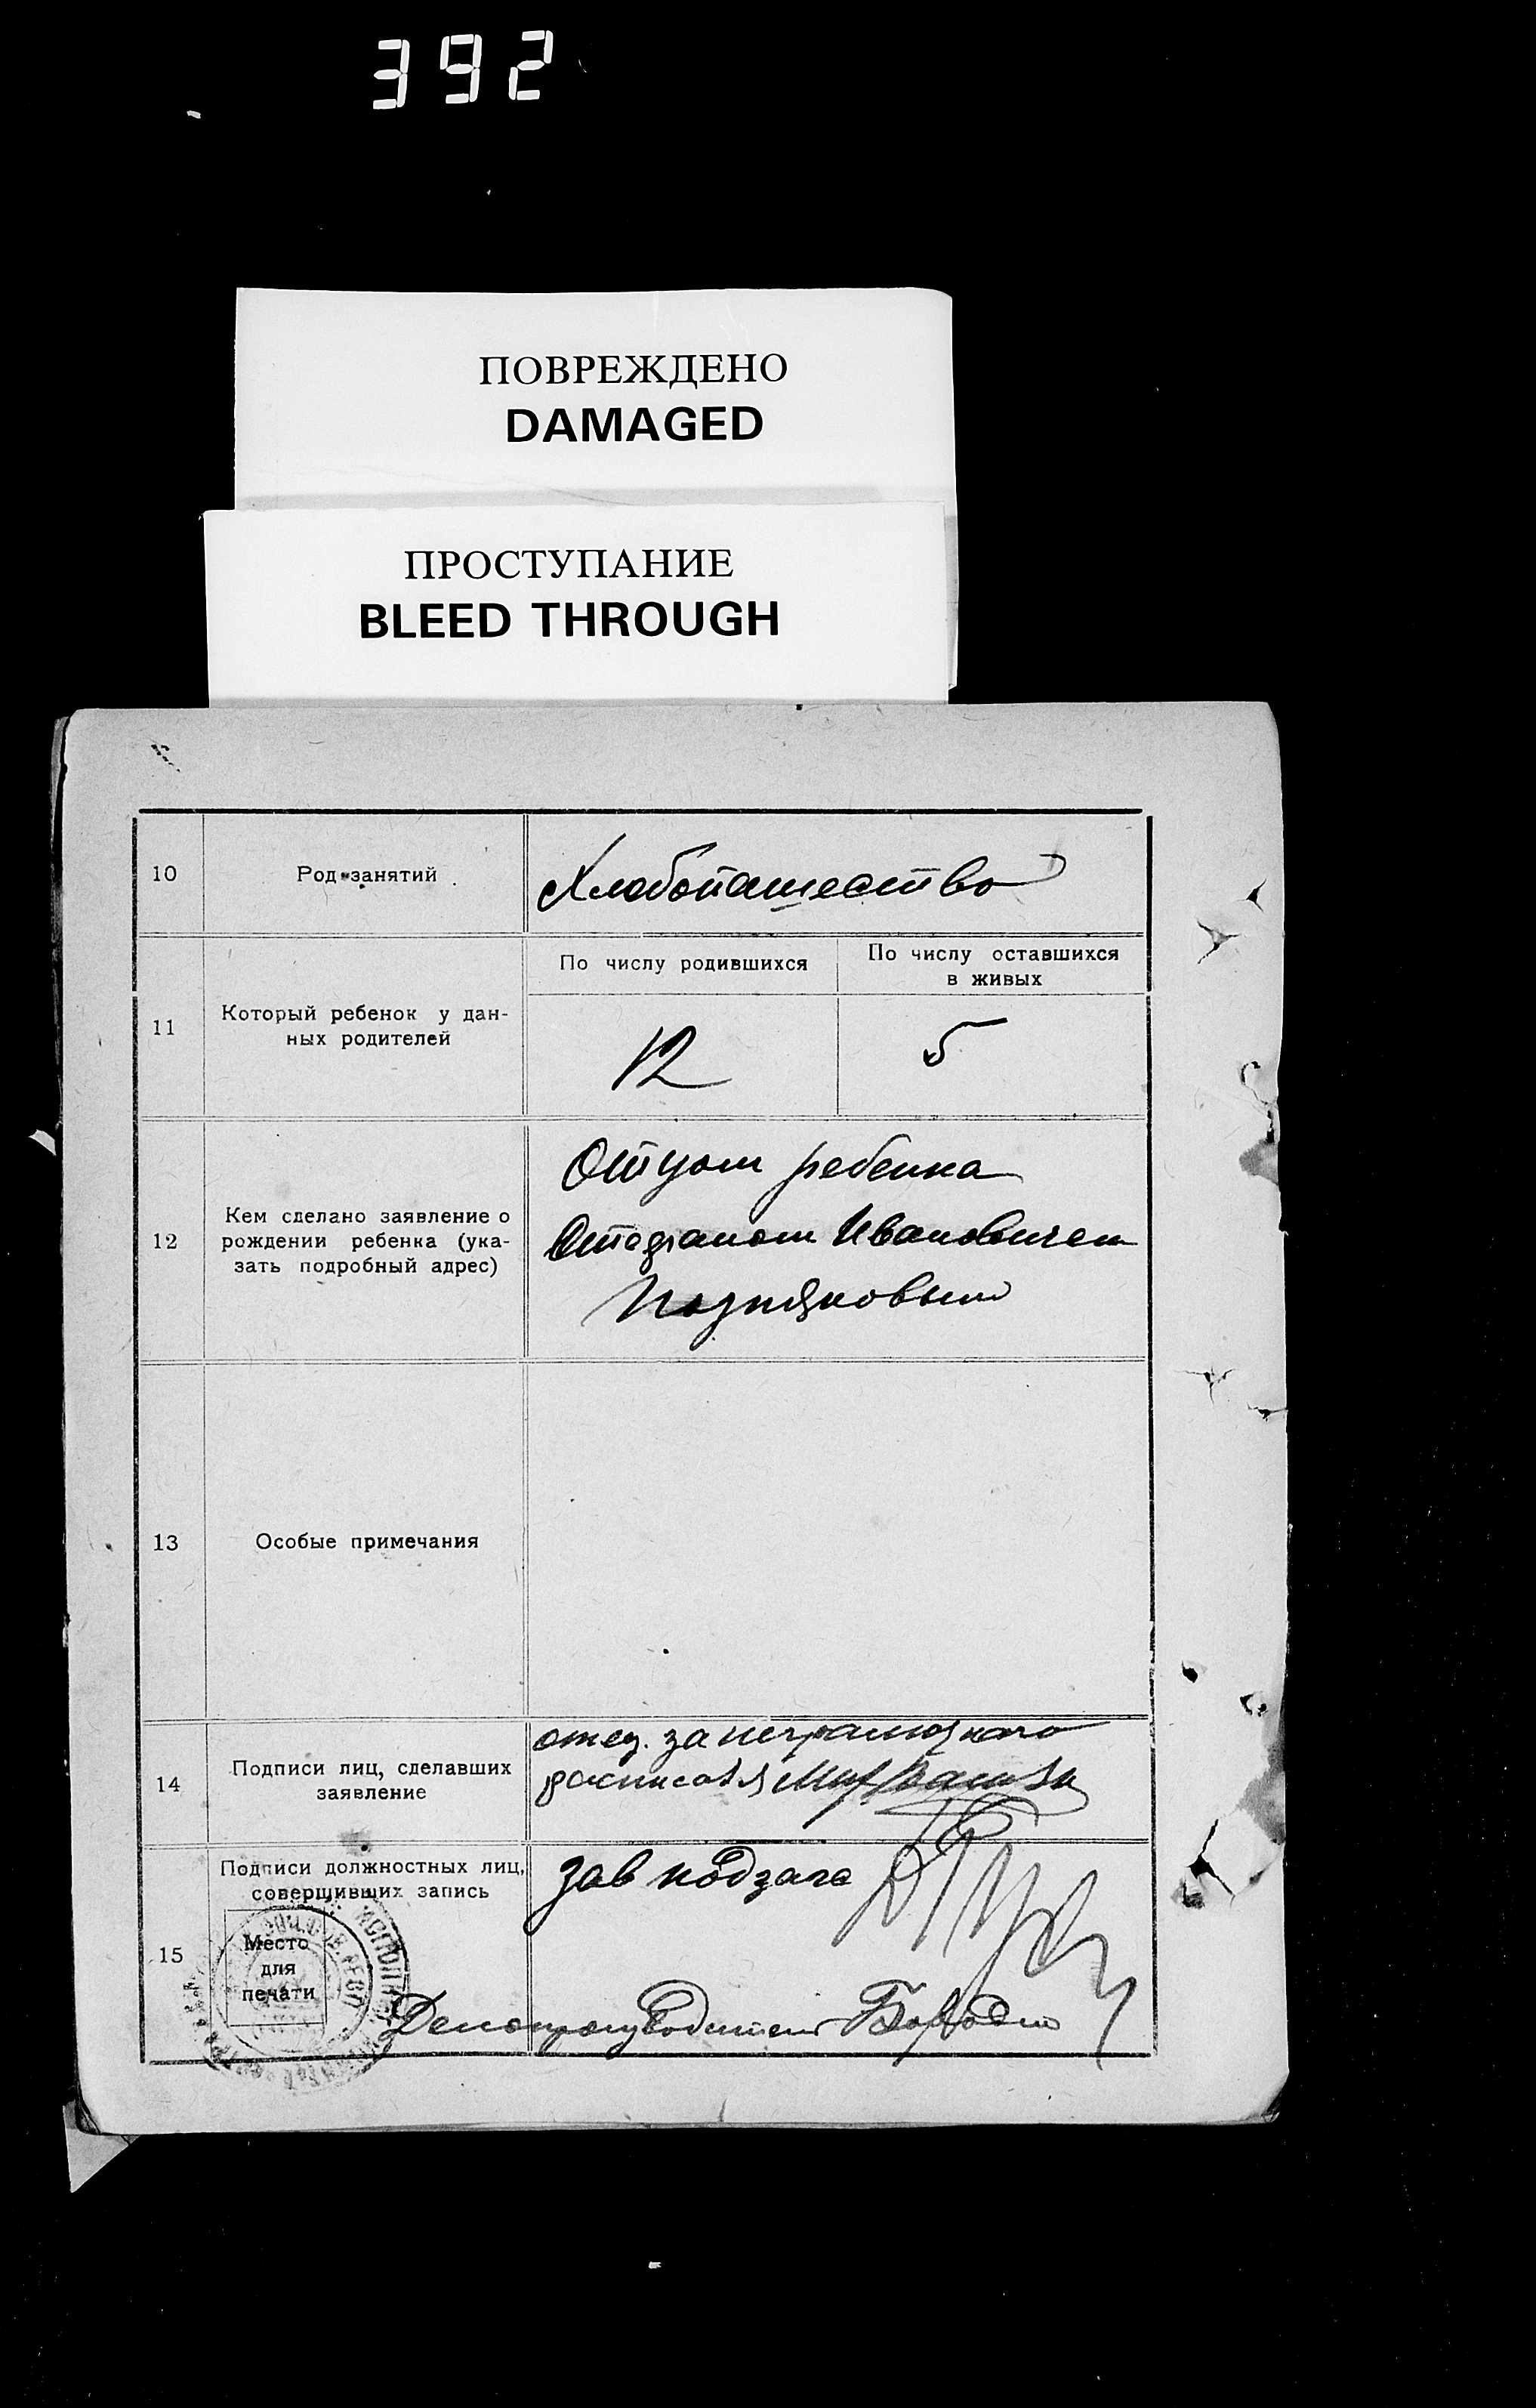 392
ПОВРЕЖДЕНО
DAMAGED
ПРОСТУПАНИЕ
BLEED THROUGH
10
Род занятий
Хлебопашество
11
Который ребенок у дан-
ных родителей
По числу родившихся
По числу оставшихся
в живых
12
5
12
Кем сделано заявление о
рождении ребенка (ука-
зать подробный адрес)
Отцом ребенка
Степаном Ивановичем
Поздняковым
13
Особые примечания
14
Подписи лиц, сделавших
заявление
отец. за неграмотного
расписался
15
Подписи должностных лиц,
соверщивщих запись
Место
для
печати
Зав подзагс
Делопроизводитель